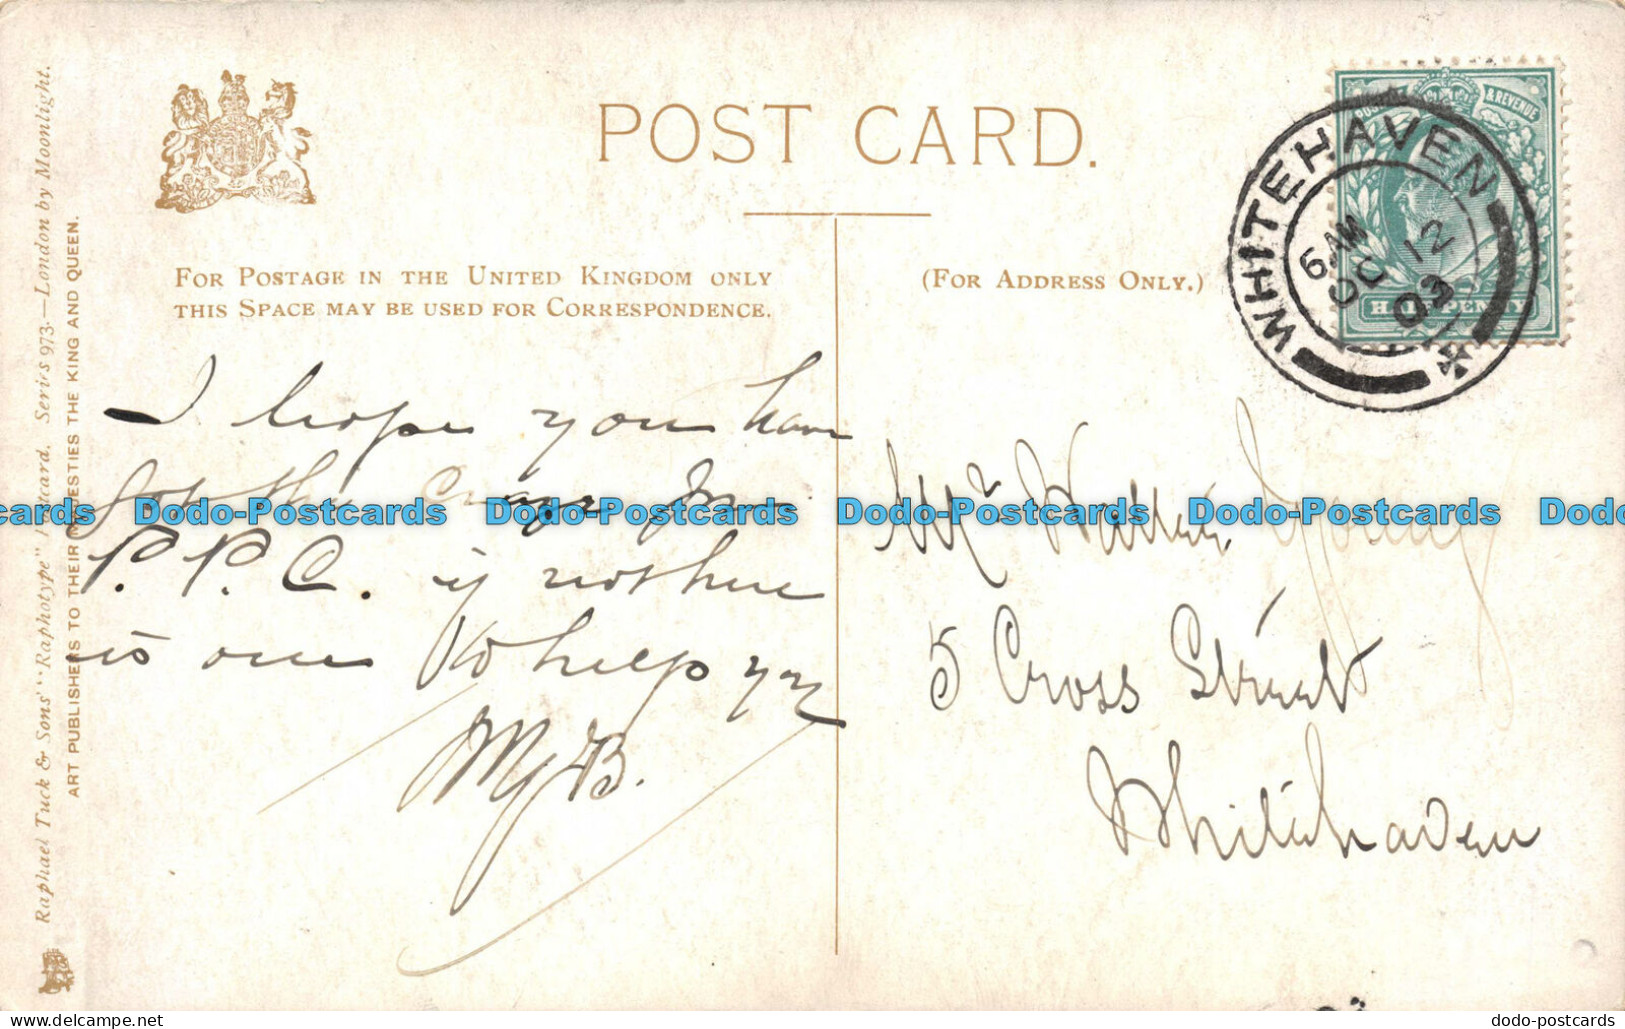 POST CARD.
FOR POSTAGE IN THE UNITED KINGDOM ONLY
THIS SPACE MAY BE USED FOR CORRESPONDENCE.
(FOR ADDRESS ONLY.)
& REVENUE
HALFPENNY
WHITEHAVEN
6 AM
OC 12
03
I hope you have
got the craze for
P. P. C. if not here
is one to help you
Mr Walter Young
5 Cross Street
Whitehaven
Raphael Tuck & Sons' "Raphotype" Postcard. Series 973.—London by Moonlight.
ART PUBLISHERS TO THEIR MAJESTIES THE KING AND QUEEN.
Dodo-Postcards Dodo-Postcards Dodo-Postcards Dodo-Postcards
dodo-postcards.com